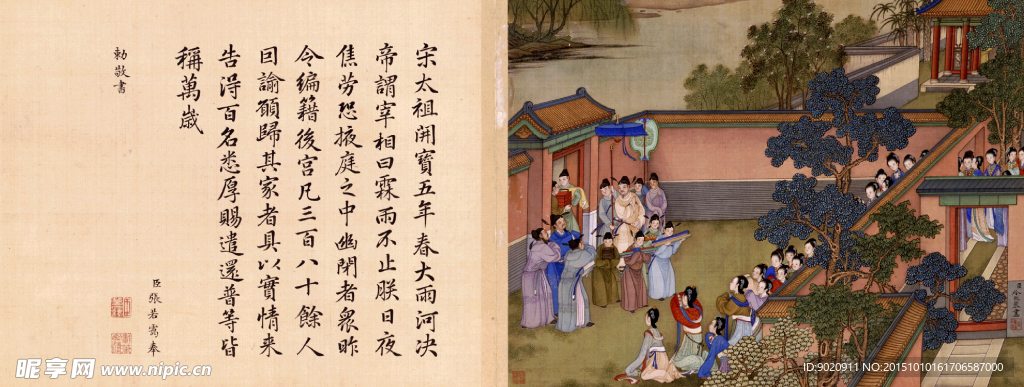 宋太祖開寶五年春大雨河决
帝謂宰相曰霖雨不止朕日夜
焦勞恐掖庭之中幽閉者衆昨
令編籍後宫凡三百八十餘人
因諭願歸其家者具以實情来
告淂百名悉厚賜遣還普等皆
稱萬歳
臣張若靄奉
勅敬書
昵享网 www.nipic.cn
ID:9020911 NO:20151010161706587000